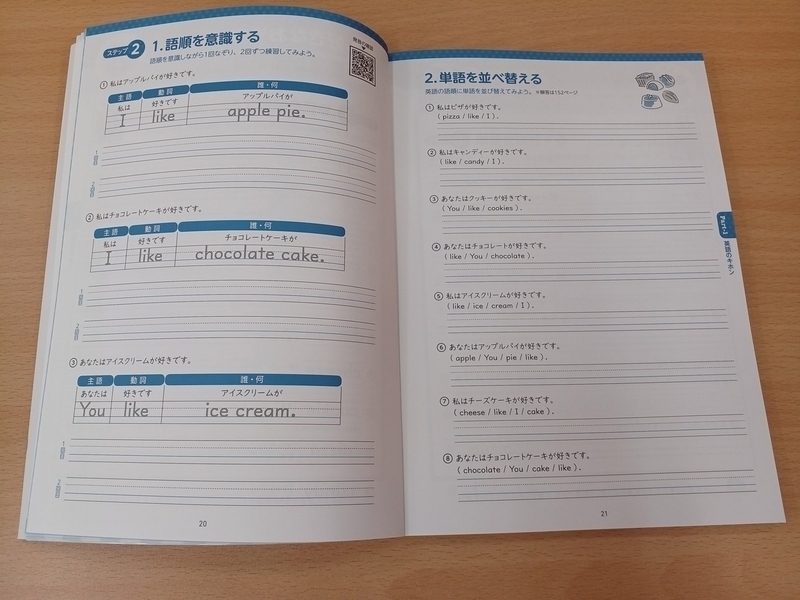 ステップ2 1.語順を意識する
語順を意識しながら1回なぞり、2回ずつ練習してみよう。
① 私はアップルパイが好きです。
主語 動詞 誰・何
私は 好きです アップルパイが
I like apple pie.
1
2
② 私はチョコレートケーキが好きです。
主語 動詞 誰・何
私は 好きです チョコレートケーキが
I like chocolate cake.
1
2
③ あなたはアイスクリームが好きです。
主語 動詞 誰・何
あなたは 好きです アイスクリームが
You like ice cream.
1
2
20
2.単語を並べ替える
英語の語順に単語を並び替えてみよう。 ※解答は152ページ
① 私はピザが好きです。
( pizza / like / I ) .
② 私はキャンディーが好きです。
( like / candy / I ) .
③ あなたはクッキーが好きです。
( You / like / cookies ) .
④ あなたはチョコレートが好きです。
( like / You / chocolate ) .
⑤ 私はアイスクリームが好きです。
( like / ice / cream / I ) .
⑥ あなたはアップルパイが好きです。
( apple / You / pie / like ) .
⑦ 私はチーズケーキが好きです。
( cheese / like / I / cake ) .
⑧ あなたはチョコレートケーキが好きです。
( chocolate / You / cake / like ) .
Part-1
英語のキホン
21